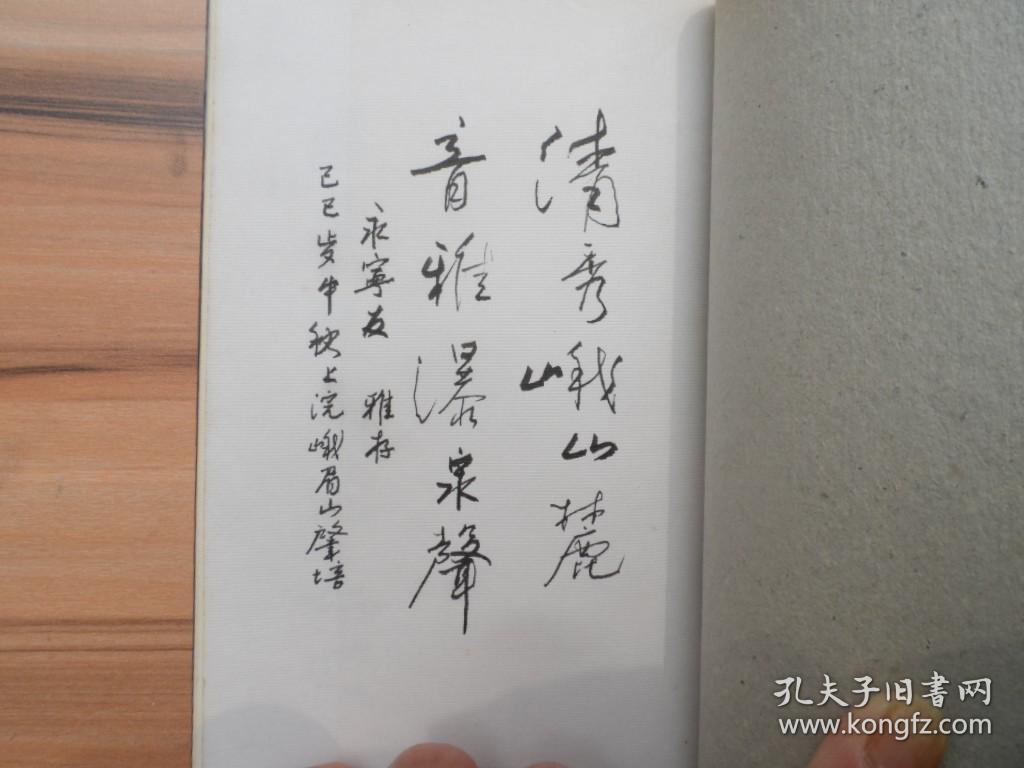 清秀峨山麓
音雅瀑泉聲
永寧友 雅存
己巳岁中秋上浣峨眉山肇培
孔夫子旧書网
www.kongfz.com